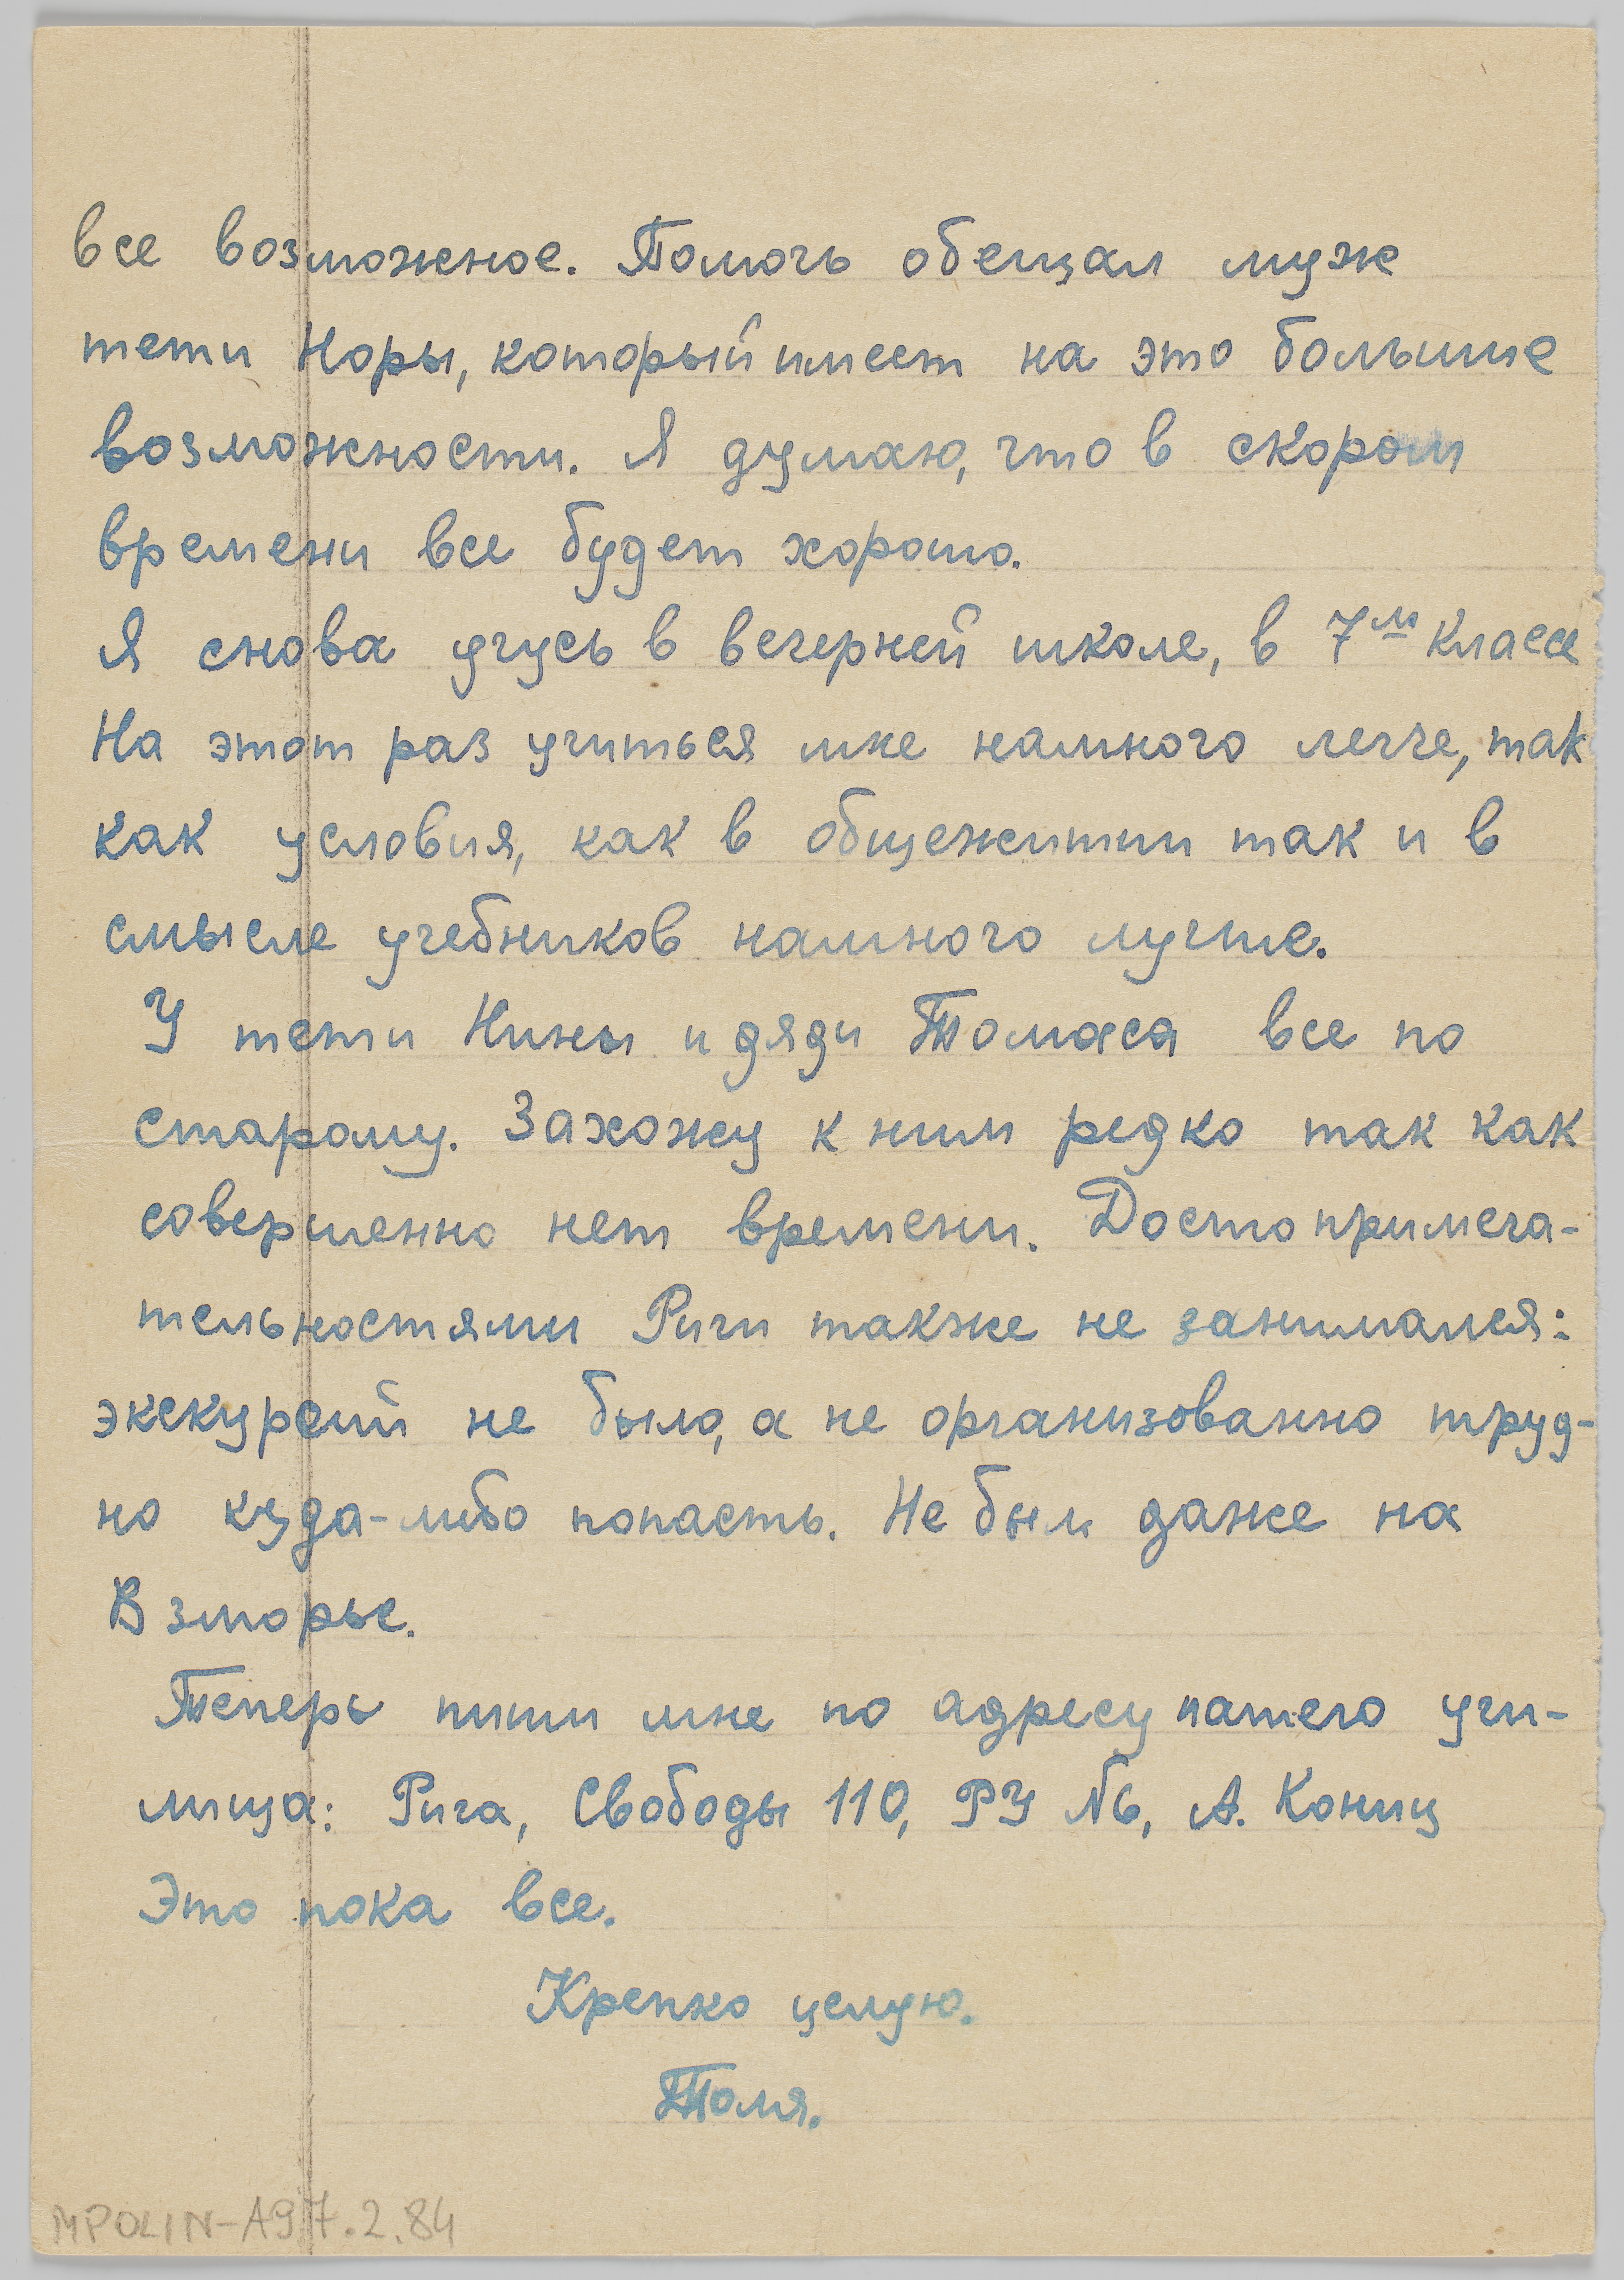 все возможное. Помочь обещал муж
тети Норы, который имеет на это большие
возможности. Я думаю, что в скором
времени все будет хорошо.
Я снова учусь в вечерней школе, в 7м классе
На этот раз учиться мне намного легче, так
как условия, как в общежитии так и в
смысле учебников намного лучше.
У тети Нины и дяди Томаса все по
старому. Захожу к ним редко так как
совершенно нет времени. Достопримеча-
тельностями Риги также не занимался:
экскурсий не было, а не организованно труд-
но куда-либо попасть. Не был даже на
Взморье.
Теперь пиши мне по адресу нашего учи-
лища: Рига, Свободы 110, РУ №6, А. Кониц
Это пока все.
Крепко целую.
Толя.
MPOLIN-A97.2.84